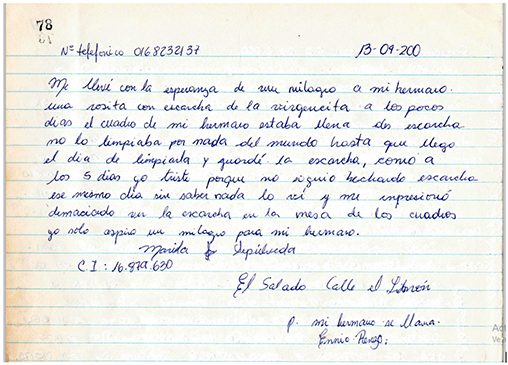 78
Nº telefonico 0168232137
13-09-200
Me llevé con la esperanza de un milagro a mi hermano.
una rosita con escarcha de la virgencita a los pocos
dias el cuadro de mi hermano estaba llena des escarcha
no lo limpiaba por nada del mundo hasta que llego
el dia de limpiarla y guardé la escarcha, como a
los 5 dias yo triste porque no siguio hechando escarcha
ese mismo dia sin saber nada lo vi y me impresionó
demaciado ver la escarcha en la mesa de los cuadros
yo solo aspiro un milagro para mi hermano.
Marila Sepulveda
C.I: 16.879.630
El Salado Calle el
p. mi hermano se llama.
Ennio Perez.